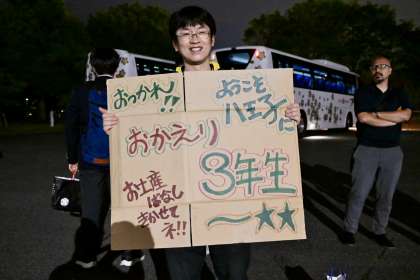 おつかれ!!
おかえり
お土産
ばなし
きかせて
ネ!!
ようこそ
八王子
に
3年生
〜★★